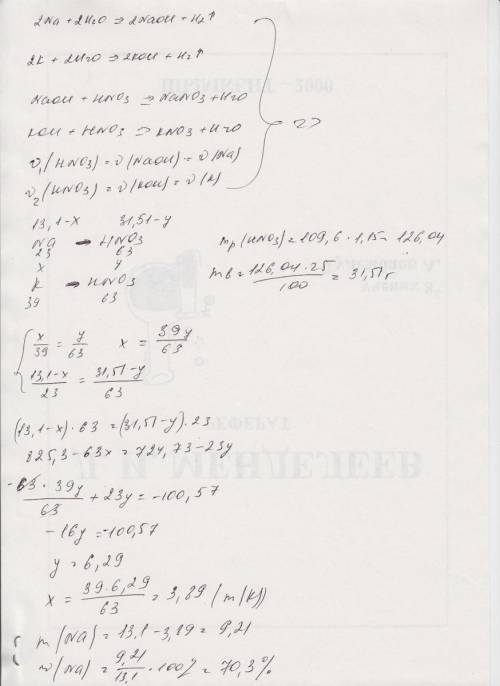 2Na + 2H2O => 2NaOH + H2↑
2K + 2H2O => 2KOH + H2↑
NaOH + HNO3 => NaNO3 + H2O
KOH + HNO3 => KNO3 + H2O
=>
ν1(HNO3) = ν(NaOH) = ν(Na)
ν2(HNO3) = ν(KOH) = ν(K)
13,1-x 31,51-y
Na → HNO3
23 63
x y
K → HNO3
39 63
mр(HNO3) = 109,6 · 1,15 = 126,04
mв = 126,04 · 25 / 100 = 31,51 г
x/39 = y/63 x = 39y/63
13,1-x/23 = 31,51-y/63
(13,1-x) · 63 = (31,51-y) · 23
825,3 - 63x = 724,73 - 23y
-63 · 39y / 63 + 23y = -100,57
-16y = -100,57
y = 6,29
x = 39 · 6,29 / 63 = 3,89 (m(K))
m(Na) = 13,1 - 3,89 = 9,21
w(Na) = 9,21/13,1 · 100% = 70,3%
ШЫМКЕНТ - 2000
РЕФЕРАТ
Д.И. МЕНДЕЛЕЕВ